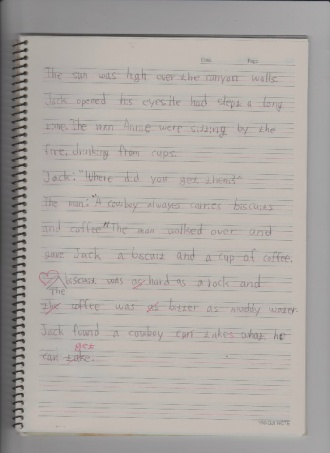 The sun was high over the canyon walls.
Jack opened his eyes. He had slept a long
time. The men  were sitting by the
fire, drinking from cups.
Jack: "Where did you get them?"
The man: "A cowboy always carries biscuits
and coffee" The man walked over and
gave Jack a biscuit and a cup of coffee.
biscuit was as hard as a rock and
The
the coffee was as bitter as muddy water.
Jack found a cowboy can't takes what he
get
can take.